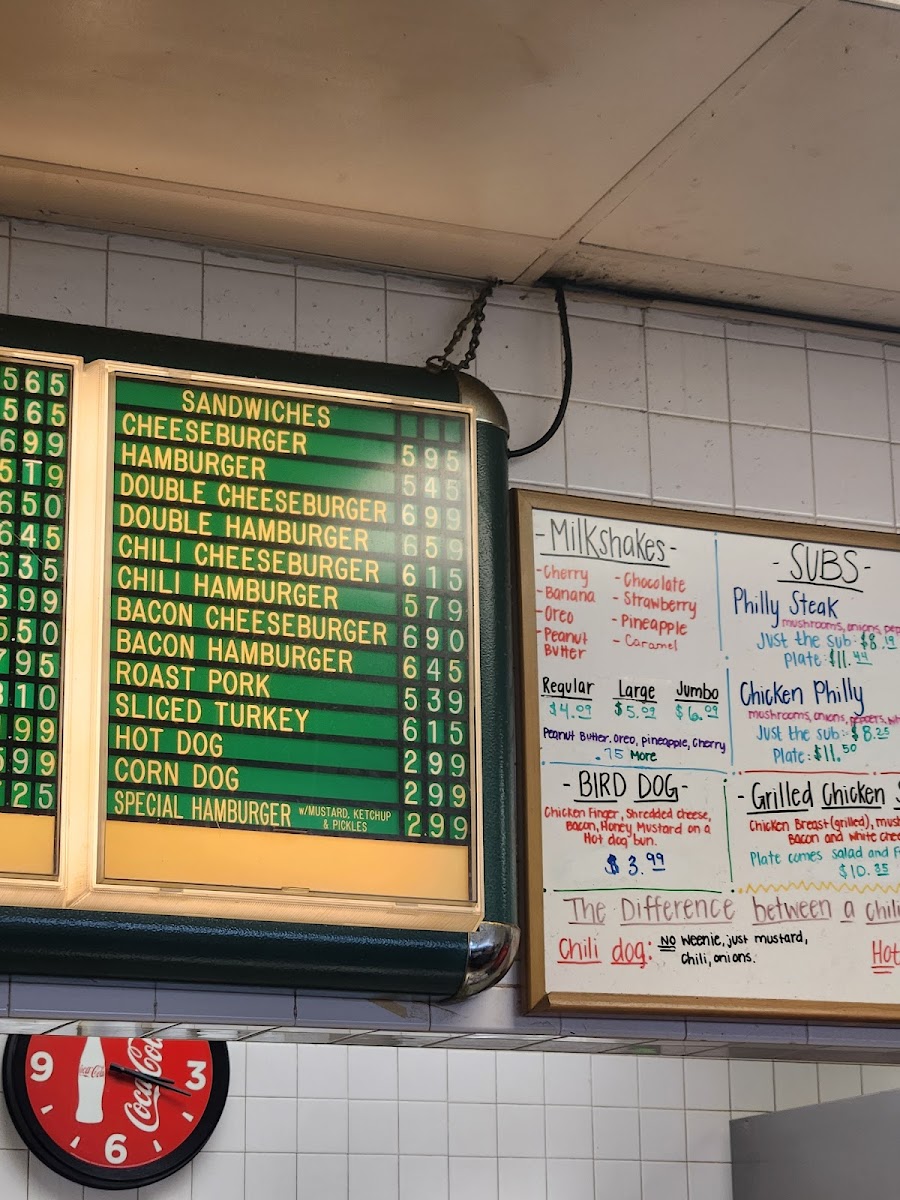 565
565
699
5T9
650
645
635
699
550
795
310
199
599
725
SANDWICHES
CHEESEBURGER 595
HAMBURGER 545
DOUBLE CHEESEBURGER 699
DOUBLE HAMBURGER 659
CHILI CHEESEBURGER 615
CHILI HAMBURGER 579
BACON CHEESEBURGER 690
BACON HAMBURGER 645
ROAST PORK 539
SLICED TURKEY 615
HOT DOG 299
CORN DOG 299
SPECIAL HAMBURGER w/MUSTARD, KETCHUP & PICKLES 2.99
-Milkshakes-
-Cherry
-Banana
-Oreo
-Peanut
Butter
-Chocolate
-Strawberry
-Pineapple
-Caramel
Regular Large Jumbo
$4.09 $5.09 $6.09
Peanut Butter, Oreo, pineapple, Cherry
.75 More
-SUBS-
Philly Steak
mushrooms, onions,
Just the sub $8.19
Plate: $11.44
Chicken Philly
mushrooms, onions, peppers,
Just the sub: $8.25
Plate: $11.50
-BIRD DOG-
Chicken Finger, Shredded cheese,
Bacon, Honey Mustard on a
Hot dog bun.
$3.99
-Grilled Chicken
Chicken Breast(grilled),
Bacon and white
Plate comes salad and
$10.35
The Difference between a chili
Chili dog: NO weenie, just mustard,
chili, onions.
Hot
9
3
6
Coca-Cola
Coca-Cola